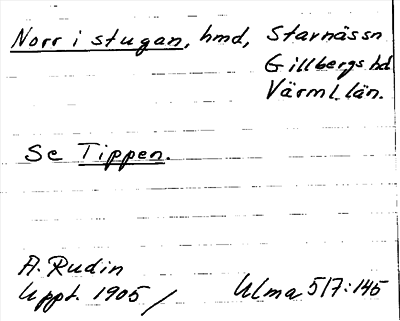 Norr i stugan, hmd, Stavnässn
Gillbergs hd
Värml. län.
Se Tippen.
A. Rudin
Uppt. 1905 /
Ulma 517:145